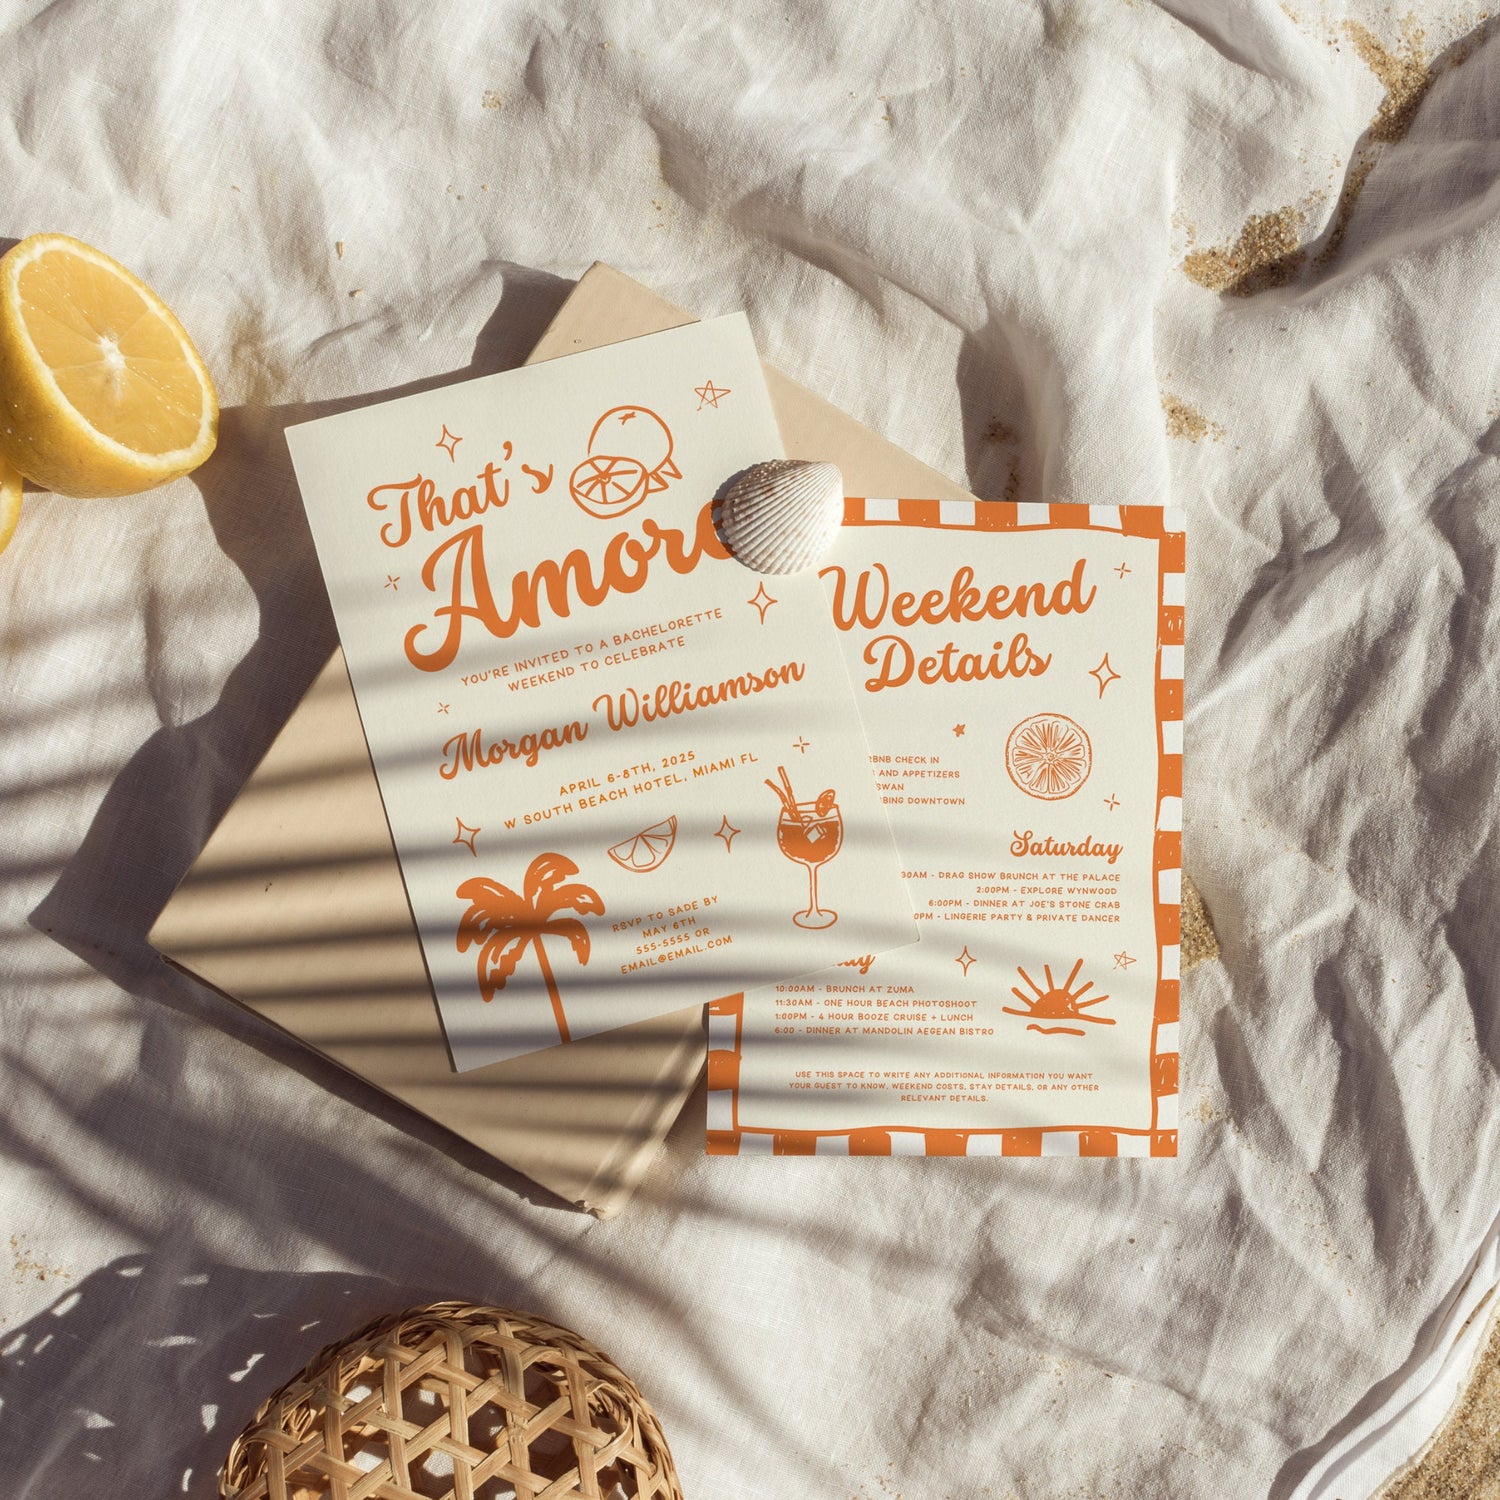 That's
Amore
YOU'RE INVITED TO A BACHELORETTE
WEEKEND TO CELEBRATE
Morgan Williamson
APRIL 6-8TH, 2025
W SOUTH BEACH HOTEL, MIAMI FL
RSVP TO SADE BY
MAY 6TH
555-5555 OR
EMAIL@EMAIL.COM
Weekend
Details
CHECK IN
AND APPETIZERS
SWAN
DOWNTOWN
Saturday
30AM - DRAG SHOW BRUNCH AT THE PALACE
2:00PM - EXPLORE WYNWOOD
6:00PM - DINNER AT JOE'S STONE CRAB
0PM - LINGERIE PARTY & PRIVATE DANCER
10:00AM - BRUNCH AT ZUMA
11:30AM - ONE HOUR BEACH PHOTOSHOOT
1:00PM - 4 HOUR BOOZE CRUISE + LUNCH
6:00 - DINNER AT MANDOLIN AEGEAN BISTRO
USE THIS SPACE TO WRITE ANY ADDITIONAL INFORMATION YOU WANT
YOUR GUEST TO KNOW, WEEKEND COSTS, STAY DETAILS, OR ANY OTHER
RELEVANT DETAILS.